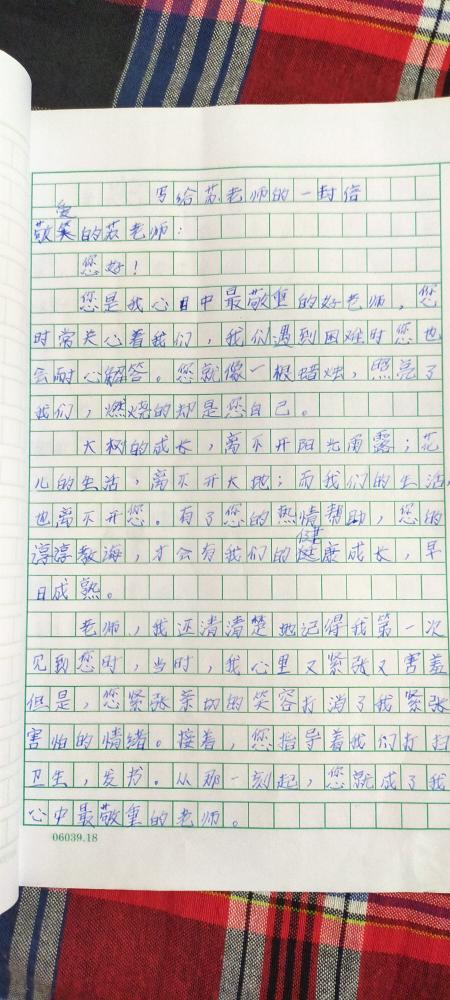 写给苏老师的一封信
爱
敬笑的苏老师：
您好！
您是我心目中最敬重的好老师，您
时常关心着我们，我们遇到困难时您也
会耐心解答。您就像一根蜡烛，照亮了
我们，燃烧的却是您自己。
大树的成长，离不开阳光雨露；花
儿的生活，离不开大地；而我们的生活，
也离不开您。有了您的热情帮助，您的
健
谆谆教海，才会有我们的健康成长，早
日成熟。
老师，我还清清楚地记得我第一次
见到您时，当时，我心里又紧张又害羞
但是，您紧张亲切的笑容打消了我紧张
害怕的情绪。接着，您指导着我们打扫
卫生，发书。从那一刻起，您就成了我
心中最敬重的老师。
06039.18